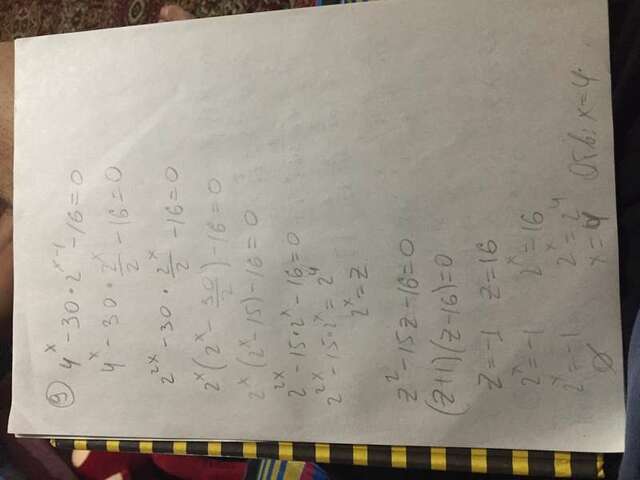 9 4^x - 30 · 2^(x-1) - 16 = 0
4^x - 30 · 2^x/2 - 16 = 0
2^(2x) - 30 · 2^x/2 - 16 = 0
2^x (2^x - 30/2) - 16 = 0
2^x (2^x - 15) - 16 = 0
2^(2x) - 15 · 2^x - 16 = 0
2^(2x) - 15 · 2^x = 2^4
2^x = z
z^2 - 15z - 16 = 0
(z+1)(z-16) = 0
z = -1 z = 16
2^x = -1 2^x = 16
2^x = -1 2^x = 2^4
∅ x = 4 Отв: x = 4.